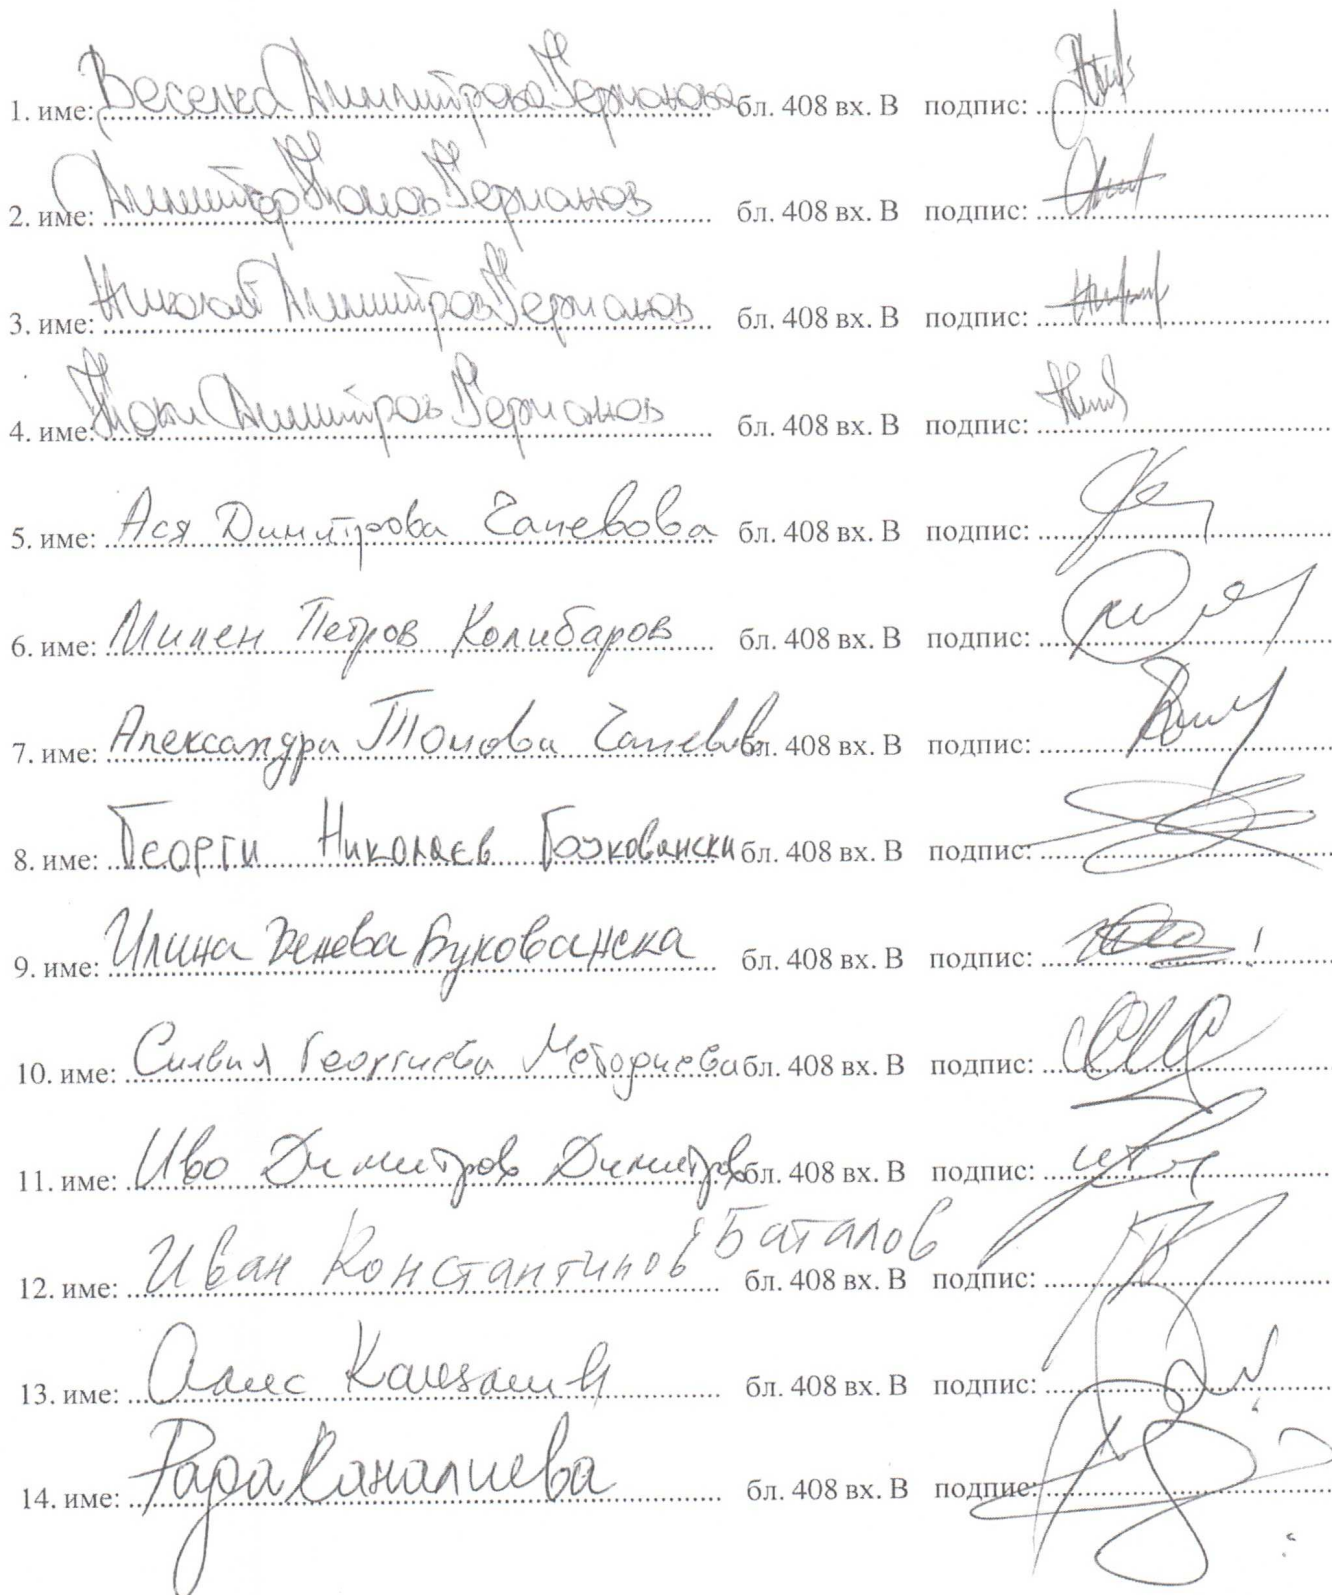 1. име: Веселка Димитрова Германова бл. 408 вх. В подпис:
2. име: Димитър Тонов Германов бл. 408 вх. В подпис:
3. име: Николай Димитров Германов бл. 408 вх. В подпис:
4. име: Тони Димитров Германов бл. 408 вх. В подпис:
5. име: Ася Димитрова бл. 408 вх. В подпис:
6. име: Милен Петров Колибаров бл. 408 вх. В подпис:
7. име: Александра бл. 408 вх. В подпис:
8. име: Георги Николаев бл. 408 вх. В подпис:
9. име: Илина Буковanска бл. 408 вх. В подпис:
10. име: Силвия Георгиева Методиева бл. 408 вх. В подпис:
11. име: Иво Димитров Димитров бл. 408 вх. В подпис:
12. име: Иван Константинов Баталов бл. 408 вх. В подпис:
13. име: бл. 408 вх. В подпис:
14. име: Рада бл. 408 вх. В подпис: